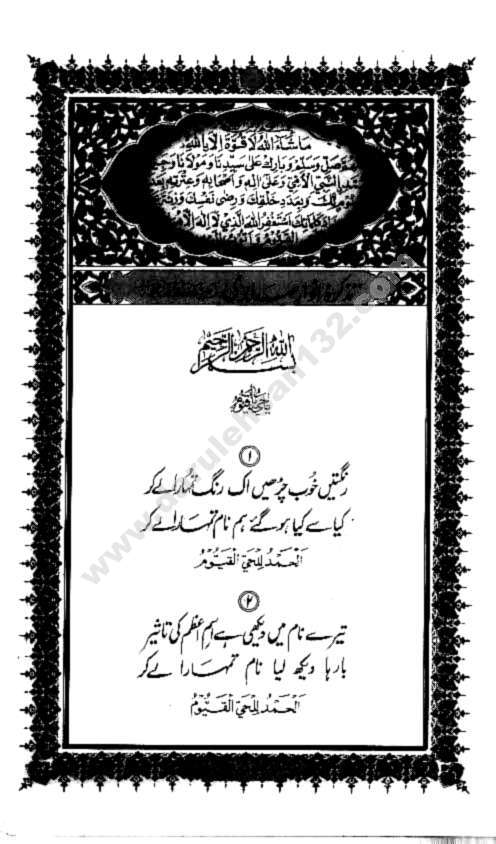 ما شاء الله لا قوة الا بالله
وسلم وبارك على سيدنا ومولانا
النبي الامي وعلى اله واصحابه وعترته
وبعدد خلقك ورضى نفسك وزنة
كلماتك استغفر الله الذي لا اله الا هو
بسم الله الرحمن الرحيم
یا حی یا قیوم
۱
رنگتیں خُوب چڑھیں اک رنگ تمہارا لے کر
کیا سے کیا ہو گئے ہم نام تمہارا لے کر
اَلْحَمْدُ لِلْحَيِّ الْقَيُّوْمُ
۲
تیرے نام میں دیکھی ہے اسمِ اعظم کی تاثیر
بارہا دیکھ لیا نام تمہارا لے کر
اَلْحَمْدُ لِلْحَيِّ الْقَيُّوْمُ